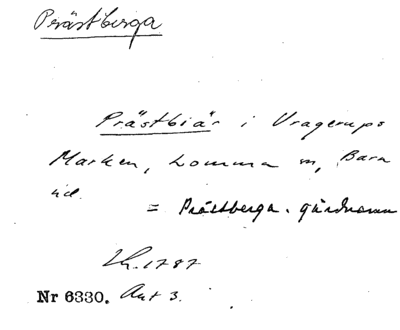 Prästberga
Prästbiär i Vragerups
Marken, Lomma sn, Bara
hd.
= Prästberga. gårdnamn
Lh. 1787
Nr 6330. Akt 3.